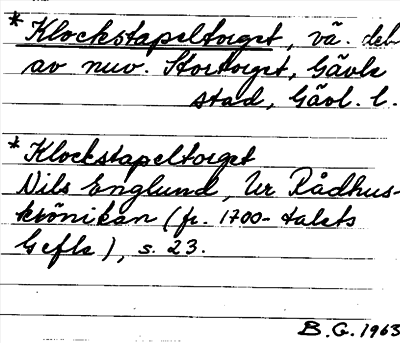 *Klockstapeltorget, vä. del
av nuv. Stortorget, Gävle
stad, Gävl. l.
*Klockstapeltorget
Nils Englund, Ur Rådhus-
krönikan (fr. 1700-talets
Gefle), s. 23.
B.G. 1963